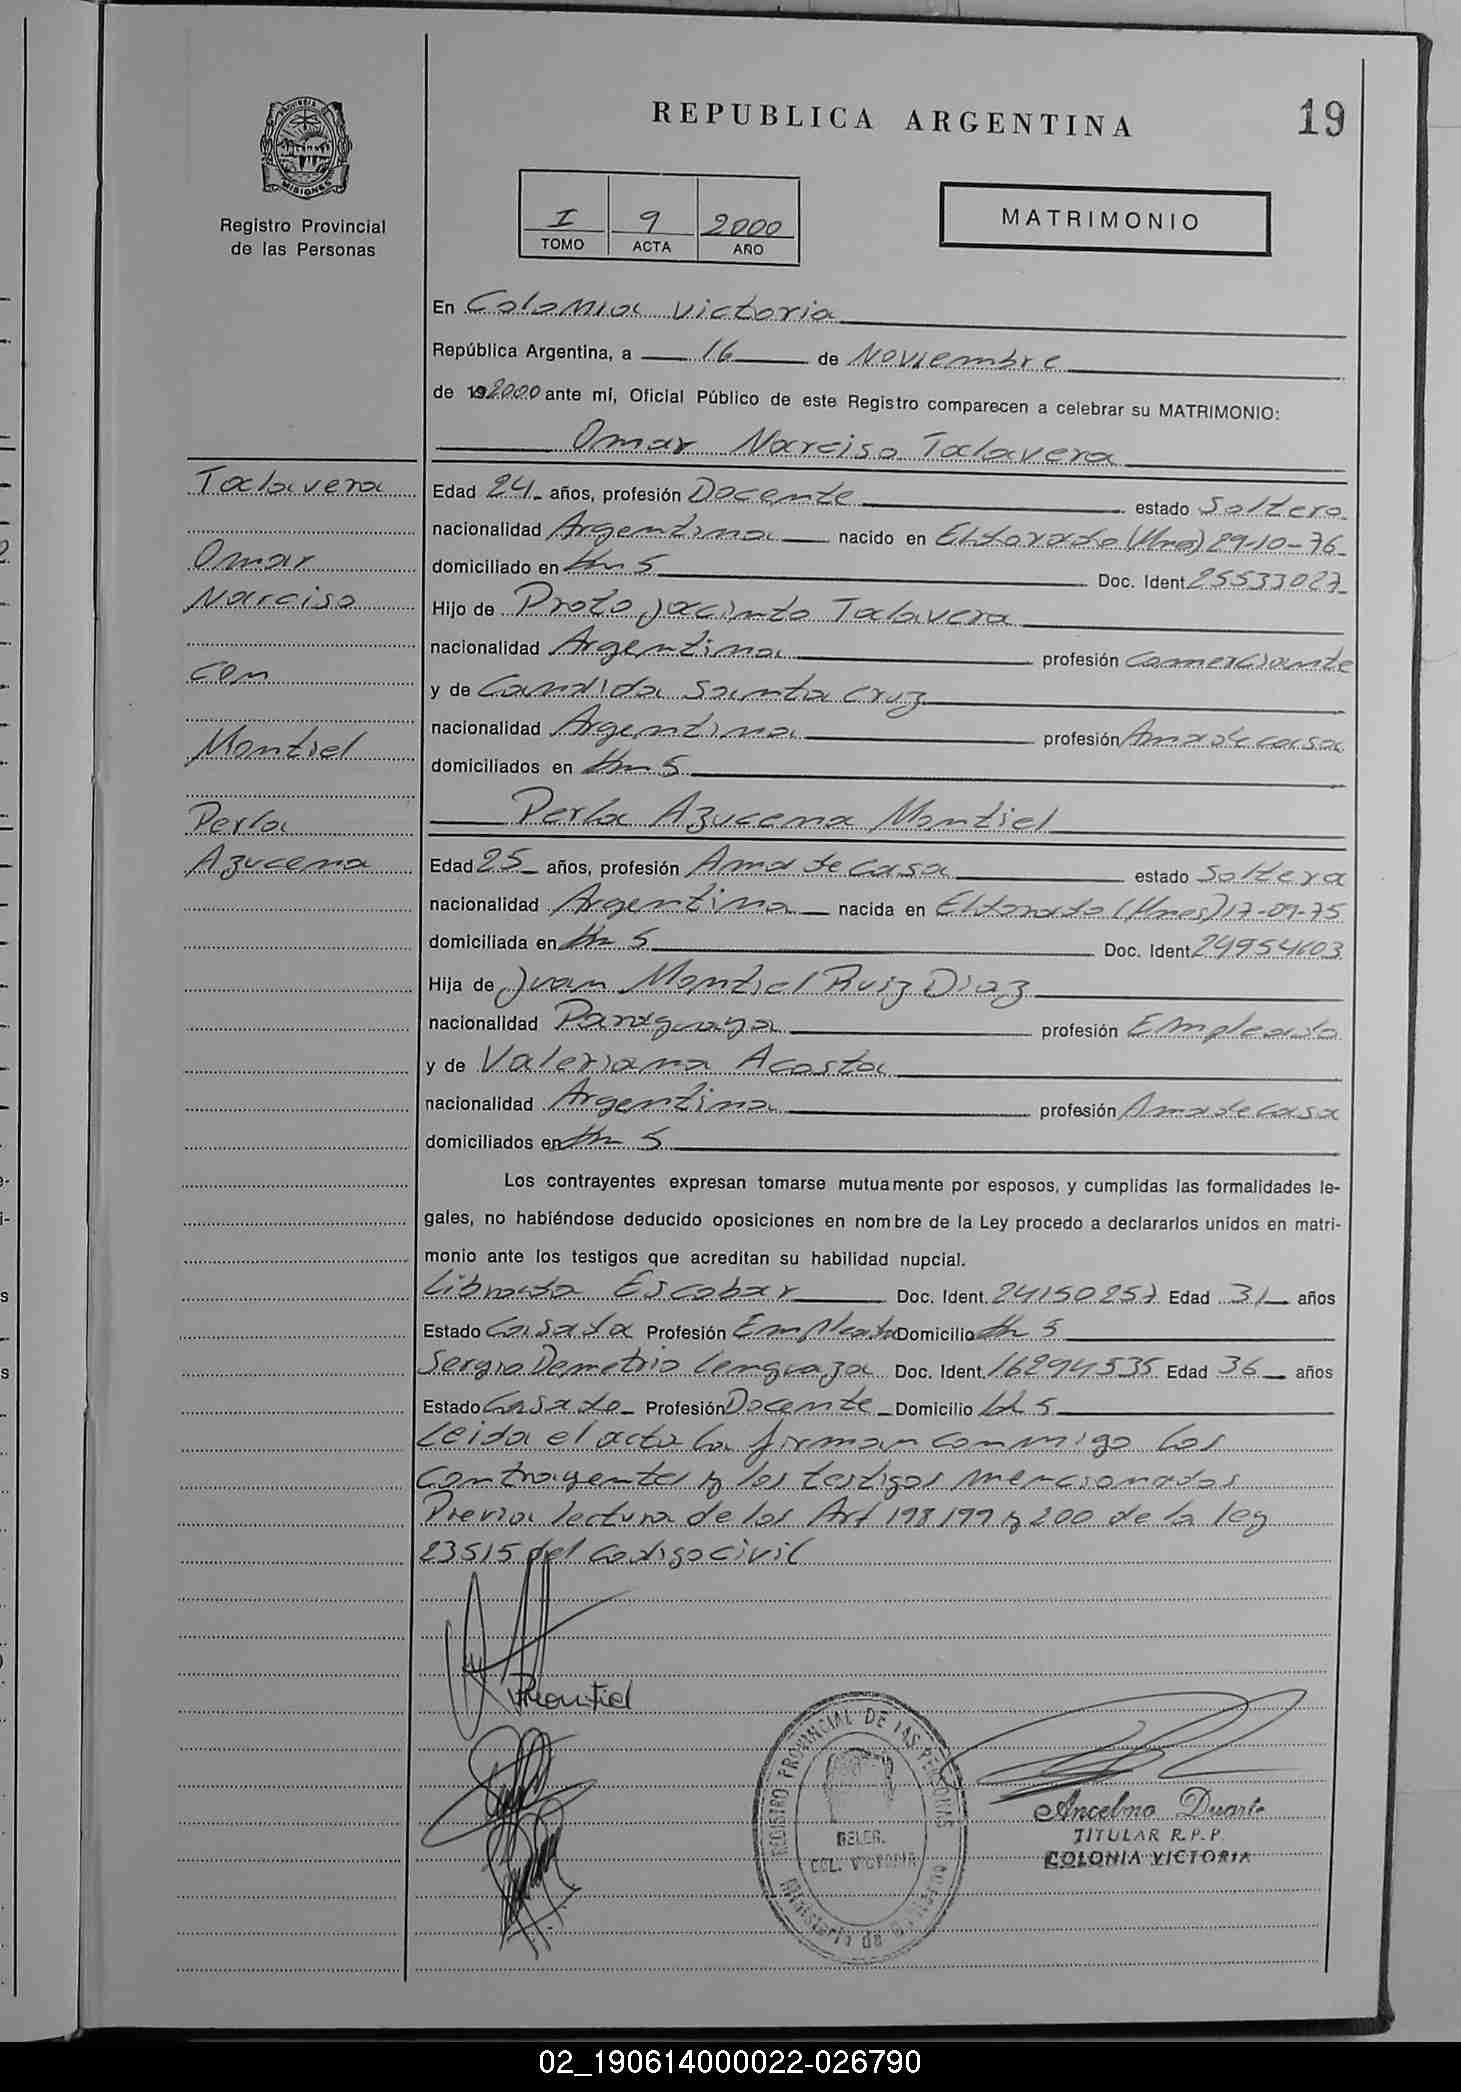 REPUBLICA ARGENTINA
19
PROVINCIA DE
MISIONES
Registro Provincial
de las Personas
I 9 2000
TOMO ACTA AÑO
MATRIMONIO
En Colonia Victoria
República Argentina, a 16 de Noviembre
de 19 2000 ante mí, Oficial Público de este Registro comparecen a celebrar su MATRIMONIO:
Omar Narciso Talavera
Talavera
Omar
Narciso
con
Montiel
Perla
Azucena
Edad 24 años, profesión Docente estado Soltero
nacionalidad Argentina nacido en Eldorado (Mnes) 29-10-76
domiciliado en Km 5 Doc. Ident. 25533027
Hijo de Proto Jacinto Talavera
nacionalidad Argentina profesión Comerciante
y de Candida Santa Cruz
nacionalidad Argentina profesión Ama de casa
domiciliados en Km 5
Perla Azucena Montiel
Edad 25 años, profesión Ama de casa estado Soltera
nacionalidad Argentina nacida en Eldorado (Mnes) 17-09-75
domiciliada en Km 5 Doc. Ident. 24954603
Hija de Juan Montiel Ruiz Diaz
nacionalidad Paraguaya profesión Empleado
y de Valeriana Acosta
nacionalidad Argentina profesión Ama de casa
domiciliados en Km 5
Los contrayentes expresan tomarse mutuamente por esposos, y cumplidas las formalidades le-
gales, no habiéndose deducido oposiciones en nombre de la Ley procedo a declararlos unidos en matri-
monio ante los testigos que acreditan su habilidad nupcial.
Librada Escobar Doc. Ident. 24150257 Edad 31 años
Estado Casada Profesión Empleada Domicilio Km 5
Sergio Demetrio Lenguaza Doc. Ident. 16294535 Edad 36 años
Estado Casado Profesión Docente Domicilio Km 5
Leida el acta la firman conmigo los
contrayentes y los testigos mencionados
Previa lectura de los Art 198 199 y 200 de la ley
23515 del codigo civil
Montiel
REGISTRO PROVINCIAL DE LAS PERSONAS
DELEG.
COL. VICTORIA
Ministerio de Gobierno
Ancelmo Duarte
TITULAR R.P.P.
COLONIA VICTORIA
02_190614000022-026790